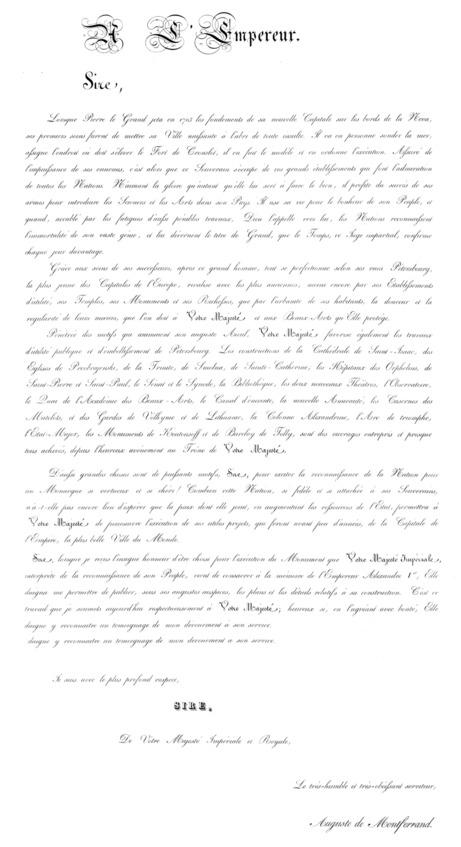 A L'Empereur.
Sire,
Lorsque Pierre le Grand jeta en 1703 les fondements de sa nouvelle Capitale sur les bords de la Neva,
ses premiers soins furent de mettre sa Ville naissante à l'abri de toute insulte. Il va en personne sonder la mer,
assigne l'endroit où doit s'élever le Fort de Cronslot, il en fait le modèle et en ordonne l'exécution. Assuré de
l'impuissance de ses ennemis, c'est alors que ce Souverain s'occupe de ces grands établissements qui font l'admiration
de toutes les Nations. N'aimant la gloire qu'autant qu'elle lui sert à faire le bien, il profite du succès de ses
armes pour introduire les Sciences et les Arts dans son Pays. Il use sa vie pour le bonheur de son Peuple, et
quand, accablé par les fatigues d'aussi pénibles travaux, Dieu l'appelle vers lui, les Nations reconnaissent
l'immortalité de son vaste génie, et lui décernent le titre de Grand, que le Temps, ce Juge impartial, confirme
chaque jour davantage.
Grâce aux soins de ses successeurs, après ce grand homme, tout se perfectionne selon ses vues. Pétersbourg,
la plus jeune des Capitales de l'Europe, rivalise avec les plus anciennes, autant encore par ses Etablissements
d'utilité, ses Temples, ses Monuments et ses Richesses, que par l'urbanité de ses habitants, la douceur et la
régularité de leurs mœurs, que l'on doit à Votre Majesté et aux Beaux-Arts qu'Elle protège.
Pénétré des motifs qui animaient son auguste Aïeul, Votre Majesté favorise également les travaux
d'utilité publique et d'embellissement de Pétersbourg. Les constructions de la Cathédrale de Saint-Isaac, des
Eglises de Preobragenski, de la Trinité, de Smolna, de Sainte-Catherine, les Hôpitaux des Orphelins, de
Saint-Pierre et Saint-Paul, le Sénat et le Synode, la Bibliothèque, les deux nouveaux Théâtres, l'Observatoire,
le Quai de l'Académie des Beaux-Arts, le Canal d'enceinte, la nouvelle Amirauté, les Casernes des
Matelots, et des Gardes de Volhynie et de Lithuanie, la Colonne Alexandrine, l'Arc de triomphe,
l'Etat-Major, les Monuments de Koutousoff et de Barclay de Tolly, sont des ouvrages entrepris et presque
tous achevés, depuis l'heureux avènement au Trône de Votre Majesté.
D'aussi grandes choses sont de puissants motifs, Sire, pour exciter la reconnaissance de la Nation pour
un Monarque si vertueux et si chéri! Combien cette Nation, si fidèle et si attachée à ses Souverains,
n'a-t-elle pas encore lieu d'espérer que la paix dont elle jouit, en augmentant les ressources de l'Etat, permettra à
Votre Majesté de poursuivre l'exécution de ses utiles projets, qui feront avant peu d'années, de la Capitale de
l'Empire, la plus belle Ville du Monde.
Sire, lorsque je reçus l'insigne honneur d'être choisi pour l'exécution du Monument que Votre Majesté Impériale,
interprète de la reconnaissance de son Peuple, vient de consacrer à la mémoire de l'Empereur Alexandre 1er, Elle
daigna me permettre de publier, sous ses augustes auspices, les plans et les détails relatifs à sa construction. C'est ce
travail que je soumets aujourd'hui respectueusement à Votre Majesté; heureux si, en l'agréant avec bonté, Elle
daigne y reconnaitre un temoignage de mon devouement a son service.
daigne y reconnaitre un temoignage de mon devouement a son service.
Je suis avec le plus profond respect,
SIRE,
De Votre Majesté Impériale et Royale,
Le très-humble et très-obéissant serviteur,
Auguste de Montferrand.